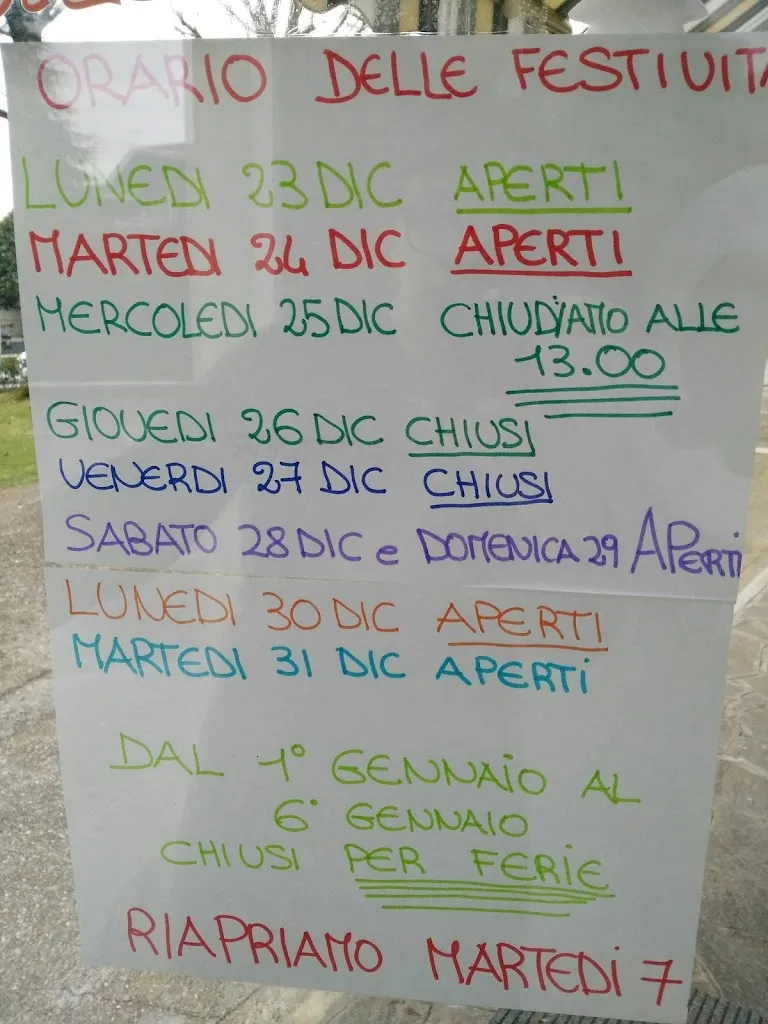 ORARIO DELLE FESTIVITA
LUNEDI 23 DIC APERTI
MARTEDI 24 DIC APERTI
MERCOLEDI 25 DIC CHIUDIAMO ALLE
13.00
GIOVEDI 26 DIC CHIUSI
VENERDI 27 DIC CHIUSI
SABATO 28 DIC e DOMENICA 29 APerti
LUNEDI 30 DIC APERTI
MARTEDI 31 DIC APERTi
DAL 1° GENNAiO AL
6° GENNAIO
CHIUSI PER FERiE
RIAPRIAMO MARTEDi 7